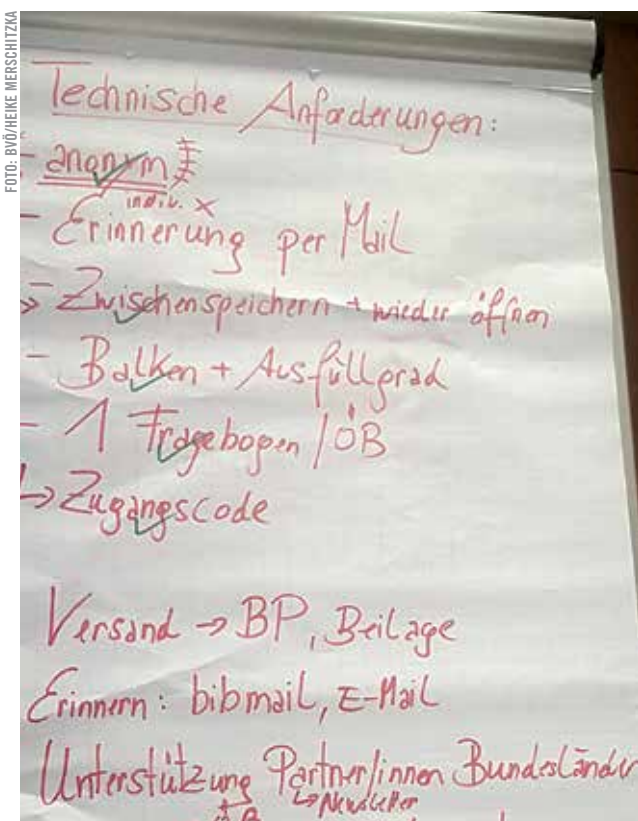 FOTO: BVÖ/HEIKE MERSCHITZKA
Technische Anforderungen:
- anonym
indiv. x
- Erinnerung per Mail
- Zwischenspeichern + wieder öffnen
- Balken + Ausfüllgrad
- 1 Fragebogen / ÖB
↳ Zugangscode
Versand → BP, Beilage
Erinnern: bibmail, E-Mail
Unterstützung Partner/innen Bundesländer
↳ Newsletter